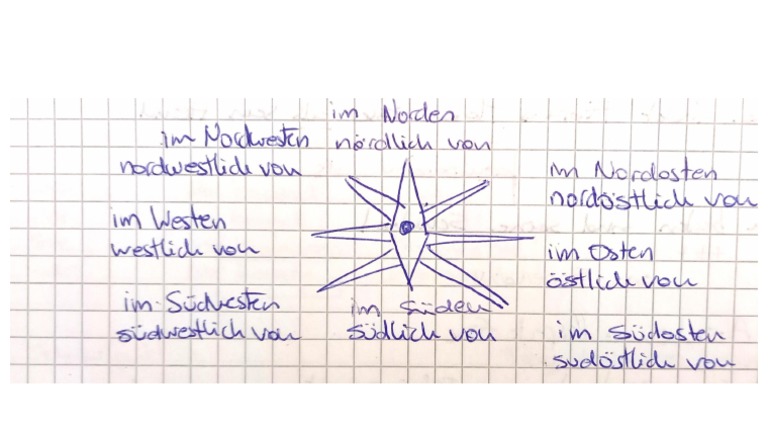 im Norden
nördlich von
im Nordwesten
nordwestlich von
im Nordosten
nordöstlich von
im Westen
westlich von
im Osten
östlich von
im Südwesten
südwestlich von
im Süden
südlich von
im Südosten
sudöstlich von